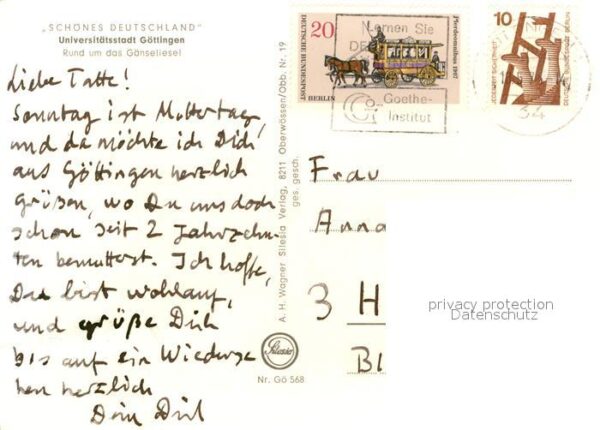 „SCHÖNES DEUTSCHLAND"
Universitätsstadt Göttingen
Rund um das Gänseliesel
Liebe Tatte!
Sonntag ist Muttertag,
und da möchte ich Dich
aus Göttingen herzlich
grüßen, wo Du uns doch
schon seit 2 Jahrzehn-
ten bemutterst. Ich hoffe,
Du bist wohlauf,
und grüße Dich
bis auf ein Wiederse
hen herzlich
Dein Dirk
A. H. Wagner Silesia Verlag, 8211 Oberwössen/Obb. Nr. 19
ges. gesch.
Silesia
Nr. Gö 568
20
DEUTSCHE BUNDESPOST
BERLIN
Pferdeomnibus 1907
10
JEDERZEIT SICHERHEIT
DEUTSCHE BUNDESPOST BERLIN
Lernen Sie
Goethe-
Institut
34
Frau
Anna
3 H
privacy protection
Datenschutz